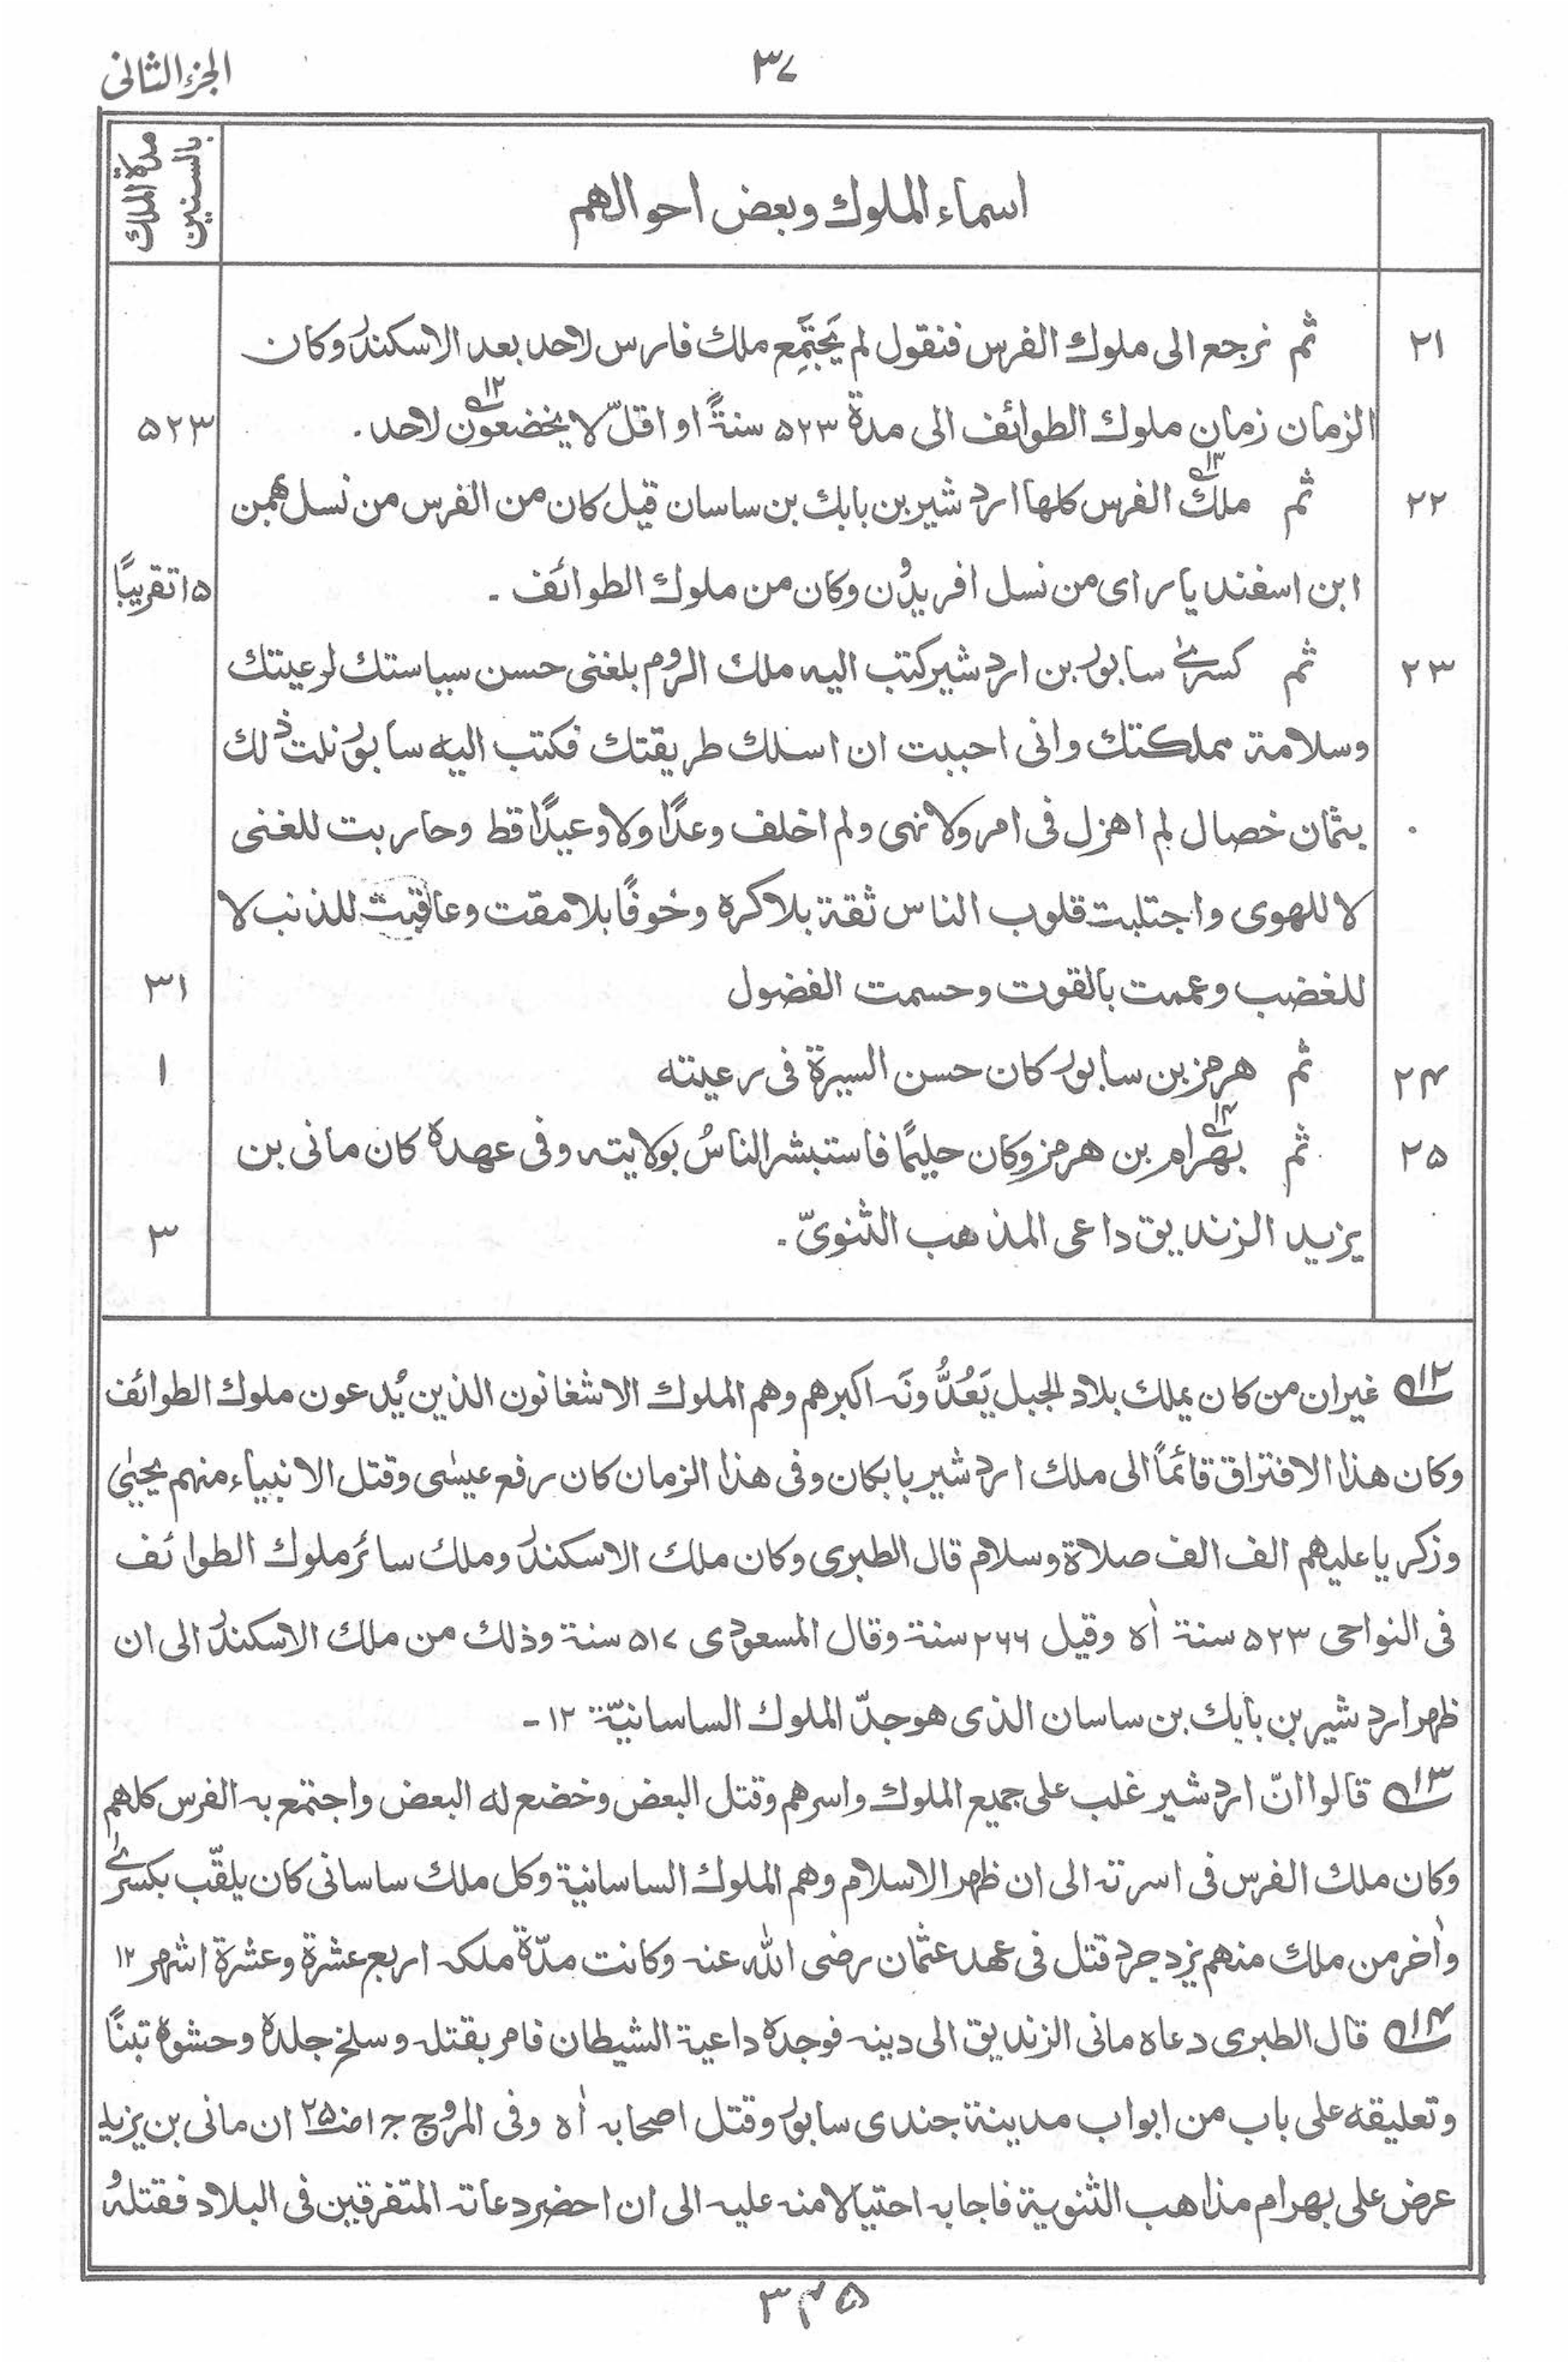 الجزء الثانی
۳۷
اسماء الملوك وبعض احوالهم
مدة الملك
بالسنین
۲۱ ثم نرجع الی ملوك الفرس فنقول لم یَجتَمِع ملك فارس لاحد بعد الاسکندر وکان
الزمان زمان ملوك الطوائف الی مدة ۵۲۳ سنةً او اقلّ لا یخضعون۱۲ لاحد. ۵۲۳
۲۲ ثم ملك۱۳ الفرس کلها اردشیر بن بابك بن ساسان قیل کان من الفرس من نسل بهمن
ابن اسفندیار ای من نسل افریدُون وکان من ملوك الطوائف ۔ ۱۵ تقریبًا
۲۳ ثم کسریٰ سابور بن اردشیر کتب الیه ملك الروم بلغنی حسن سیاستك لرعیتك
وسلامة مملکتك وانی احببت ان اسلك طریقتك فکتب الیه سابور نلت ذلك
بثمان خصال لم اهزل فی امر ولا نهی ولم اخلف وعدًا ولا وعیدًا قط وحاربت للغنی
لا للهوی واجتلبت قلوب الناس ثقة بلا کره وخوفًا بلا مقت وعاقبت للذنب لا
للغضب وعممت بالقوت وحسمت الفضول ۳۱
۲۴ ثم هرمز بن سابور کان حسن السیرة فی رعیته ۱
۲۵ ثم بهرام۱۴ بن هرمز وکان حلیمًا فاستبشر الناسُ بولایته وفی عهده کان مانی بن
یزید الزندیق داعی المذهب الثنویّ. ۳
۱۲ غیر ان من کان یملك بلاد الجبل یَعُدُّونَه اکبرهم وهم الملوك الاشغانون الذین یُدعون ملوك الطوائف
وکان هذا الافتراق قائمًا الی ملك اردشیر بابکان وفی هذا الزمان کان رفع عیسٰی وقتل الانبیاء منهم یحیٰی
وزکریا علیهم الف الف صلاة وسلام قال الطبری وکان ملك الاسکندر وملك سائر ملوك الطوائف
فی النواحی ۵۲۳ سنة اٰه وقیل ۲۶۶ سنة وقال المسعودی ۵۱۷ سنة وذلك من ملك الاسکندر الی ان
ظهر اردشیر بن بابك بن ساسان الذی هو جدّ الملوك الساسانیّة ۱۲۔
۱۳ قالوا انّ اردشیر غلب علی جمیع الملوك واسرهم وقتل البعض وخضع له البعض واجتمع به الفرس کلهم
وکان ملك الفرس فی اسرته الی ان ظهر الاسلام وهم الملوك الساسانیة وکل ملك ساسانی کان یلقّب بکسریٰ
واٰخر من ملك منهم یزدجرد قتل فی عهد عثمان رضی الله عنه وکانت مدّة ملکه اربع عشرة وعشرة اشهر ۱۲
۱۴ قال الطبری دعاه مانی الزندیق الی دینه فوجده داعیة الشیطان فامر بقتله وسلخ جلده وحشوه تبنًا
وتعلیقه علی باب من ابواب مدینة جندی سابور وقتل اصحابه اٰه وفی المروج ج ۱ صـ ۲۵ ان مانی بن یزید
عرض علی بهرام مذاهب الثنویة فاجابه احتیالا منه علیه الی ان احضر دعاته المتفرقین فی البلاد فقتلهُ
۳۴۵